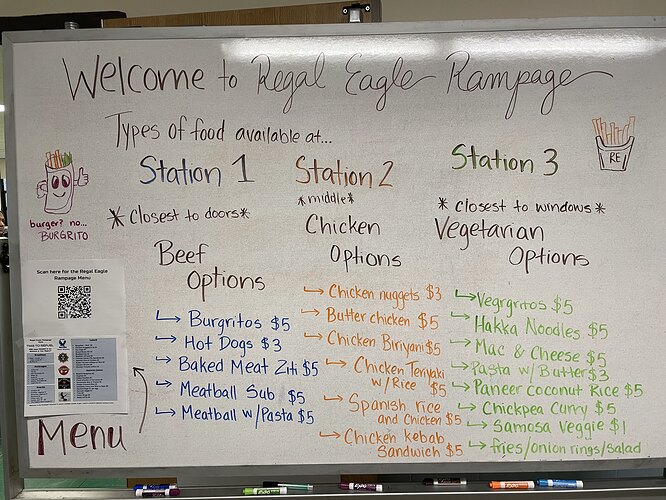 Welcome to Regal Eagle Rampage
Types of food available at...
Station 1
*closest to doors*
Beef
Options
↳ Burgritos $5
↳ Hot Dogs $3
↳ Baked Meat Ziti $5
↳ Meatball Sub $5
↳ Meatball w/Pasta $5
Station 2
*middle*
Chicken
Options
↳ Chicken nuggets $3
↳ Butter chicken $5
↳ Chicken Biriyani $5
↳ Chicken Teriyaki
w/Rice $5
↳ Spanish rice
and Chicken $5
↳ Chicken kebab
Sandwich $5
Station 3
*closest to windows*
Vegetarian
Options
↳ Vegrgritos $5
↳ Hakka Noodles $5
↳ Mac & Cheese $5
↳ Pasta w/Butter $3
↳ Paneer Coconut Rice $5
↳ Chickpea Curry $5
↳ Samosa Veggie $1
↳ fries/onion rings/salad
RE
burger? no...
BURGRITO
Scan here for the Regal Eagle
Rampage Menu
Menu
EXPO